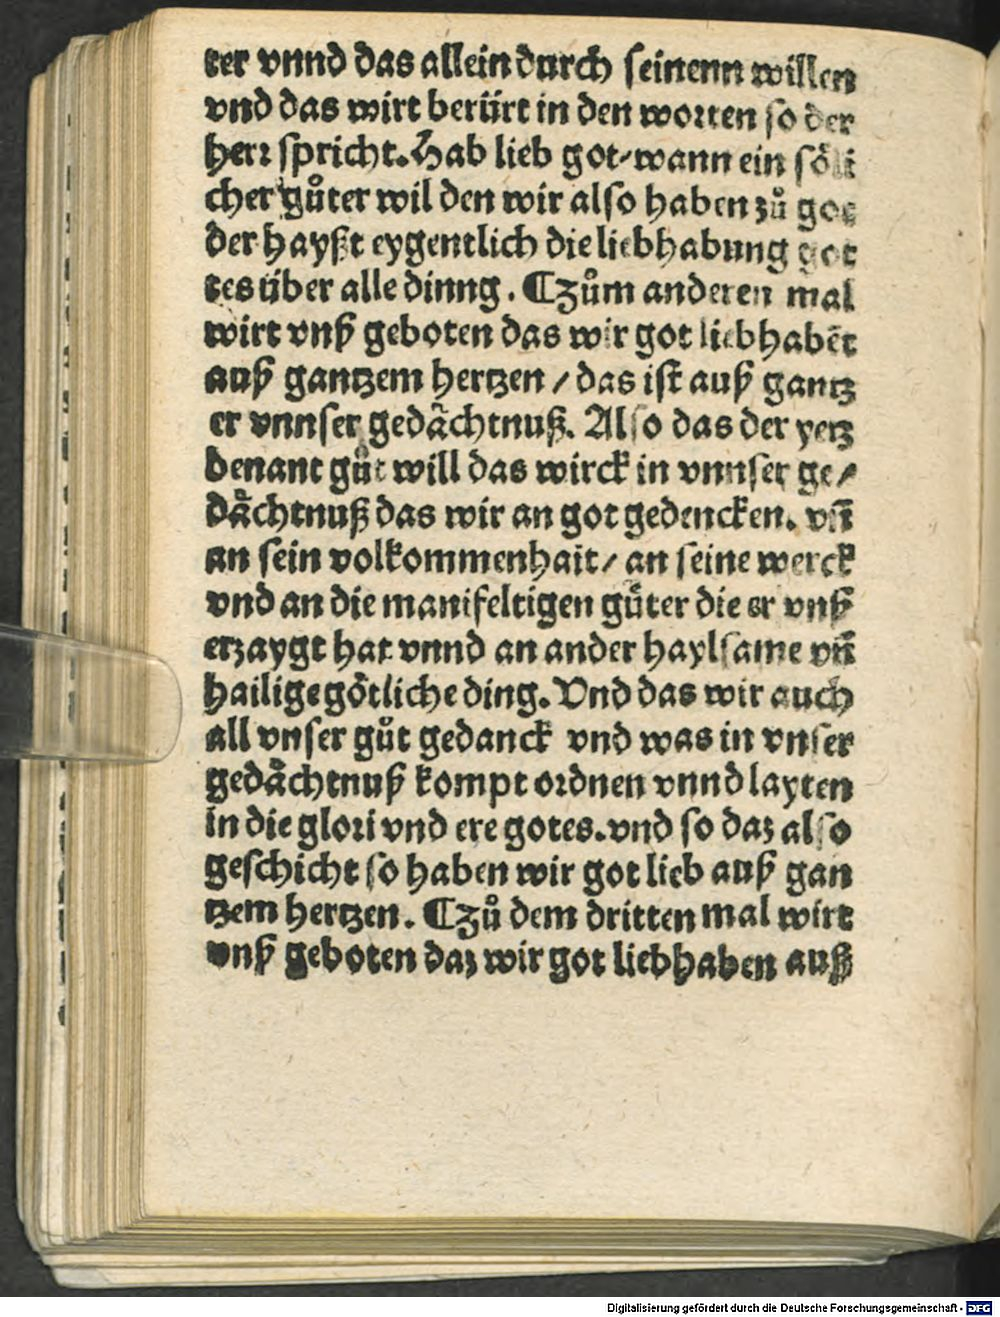 ter vnnd das allein durch seinenn willen
vnd das wirt berürt in den worten so der
herr spricht. Hab lieb got/wann ein söli
cher gůter wil den wir also haben zů got
der hayßt eygentlich die liebhabung got
tes über alle dinng. ¶Zům anderen mal
wirt vnß geboten das wir got liebhabēt
auß gantzem hertzen / das ist auß gantz
er vnnser gedächtnuß. Also das der yetz
benant gůt will das wirck in vnnser ge/
dächtnuß das wir an got gedencken. vñ
an sein volkommenhait/ an seine werck
vnd an die manifeltigen gůter die er vnß
erzaygt hat vnnd an ander haylsame vñ
hailige götliche ding. Vnd das wir auch
all vnser gůt gedanck vnd was in vnser
gedächtnuß kompt ordnen vnnd layten
in die glori vnd ere gotes. vnd so daz also
geschicht so haben wir got lieb auß gan
tzem hertzen. ¶Zů dem dritten mal wirt
vnß geboten daz wir got liebhaben auß
Digitalisierung gefördert durch die Deutsche Forschungsgemeinschaft - DFG